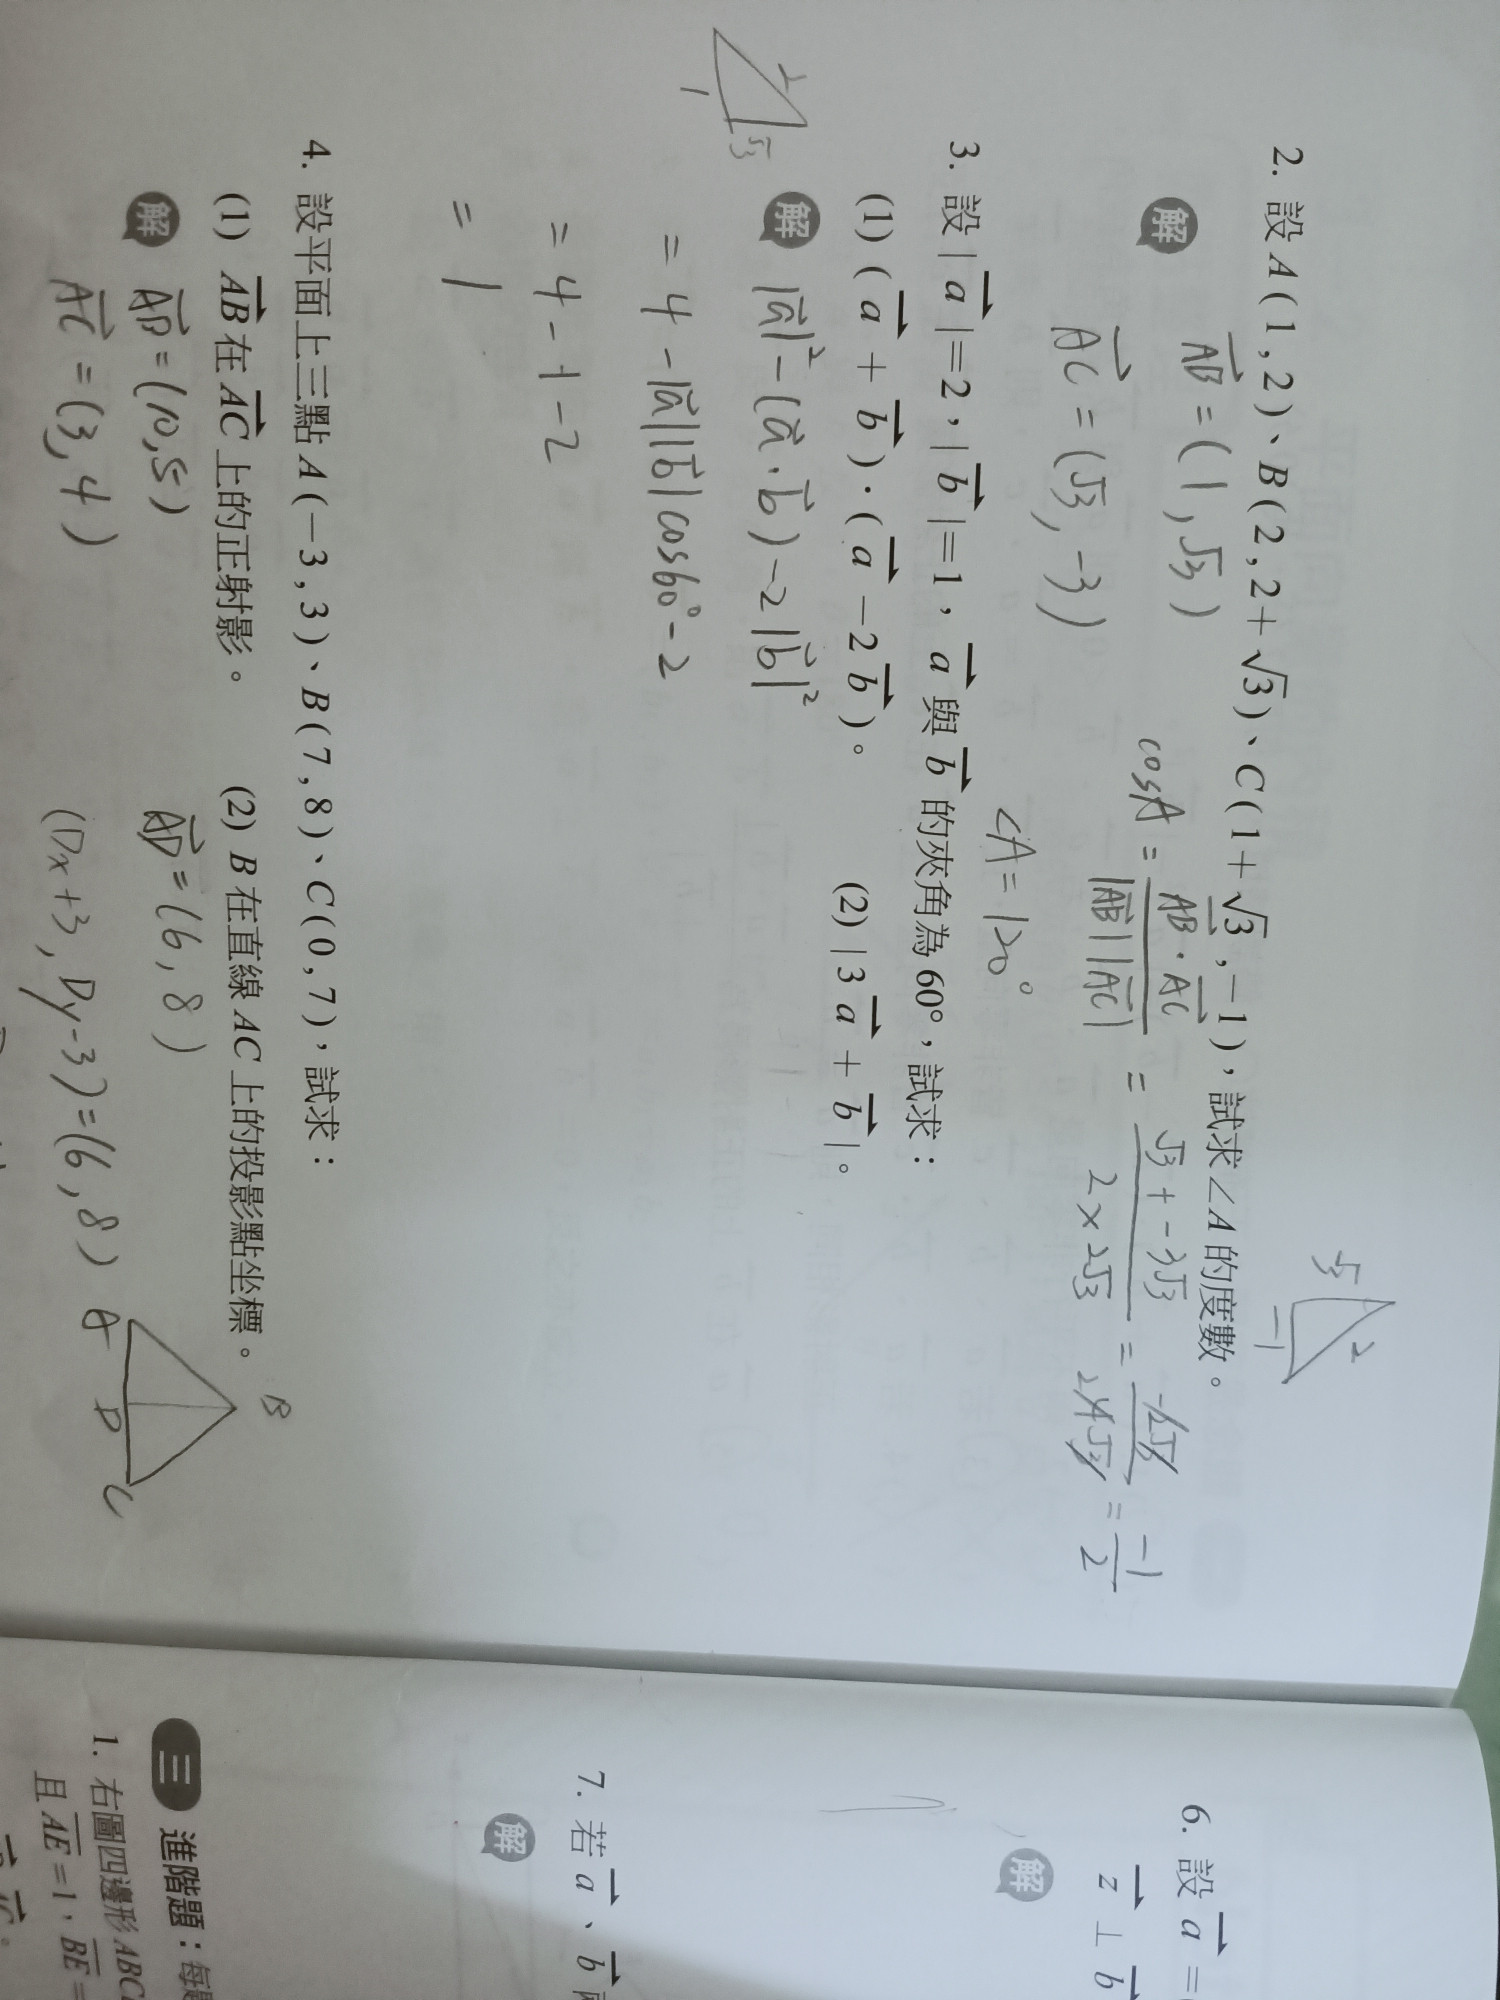 2. 設 A(1,2)、B(2,2+√3)、C(1+√3,−1),試求∠A的度數。
√3 2 −1
解 AB=(1,√3)
AC=(√3,−3)
cosA = AB·AC / |AB||AC| = √3+−3√3 / 2×2√3 = −2√3 / 4√3 = −1/2
∠A=120°
3. 設|a|=2,|b|=1,a與b的夾角為60°,試求:
(1)(a+b)·(a−2b)。 (2)|3a+b|。
解 |a|²−(a·b)−2|b|²
2 1 √3
=4−|a||b|cos60°−2
=4−1−2
=1
4. 設平面上三點 A(−3,3)、B(7,8)、C(0,7),試求:
(1) AB在AC上的正射影。 (2) B在直線AC上的投影點坐標。
解 AB=(10,5)
AC=(3,4)
AD=(6,8)
(Dx+3,Dy−3)=(6,8)
B
A D C
6. 設a=
z⊥b
解
7. 若a、b
解
三 進階題:每
1. 右圖四邊形ABC
且AE=1、BE=